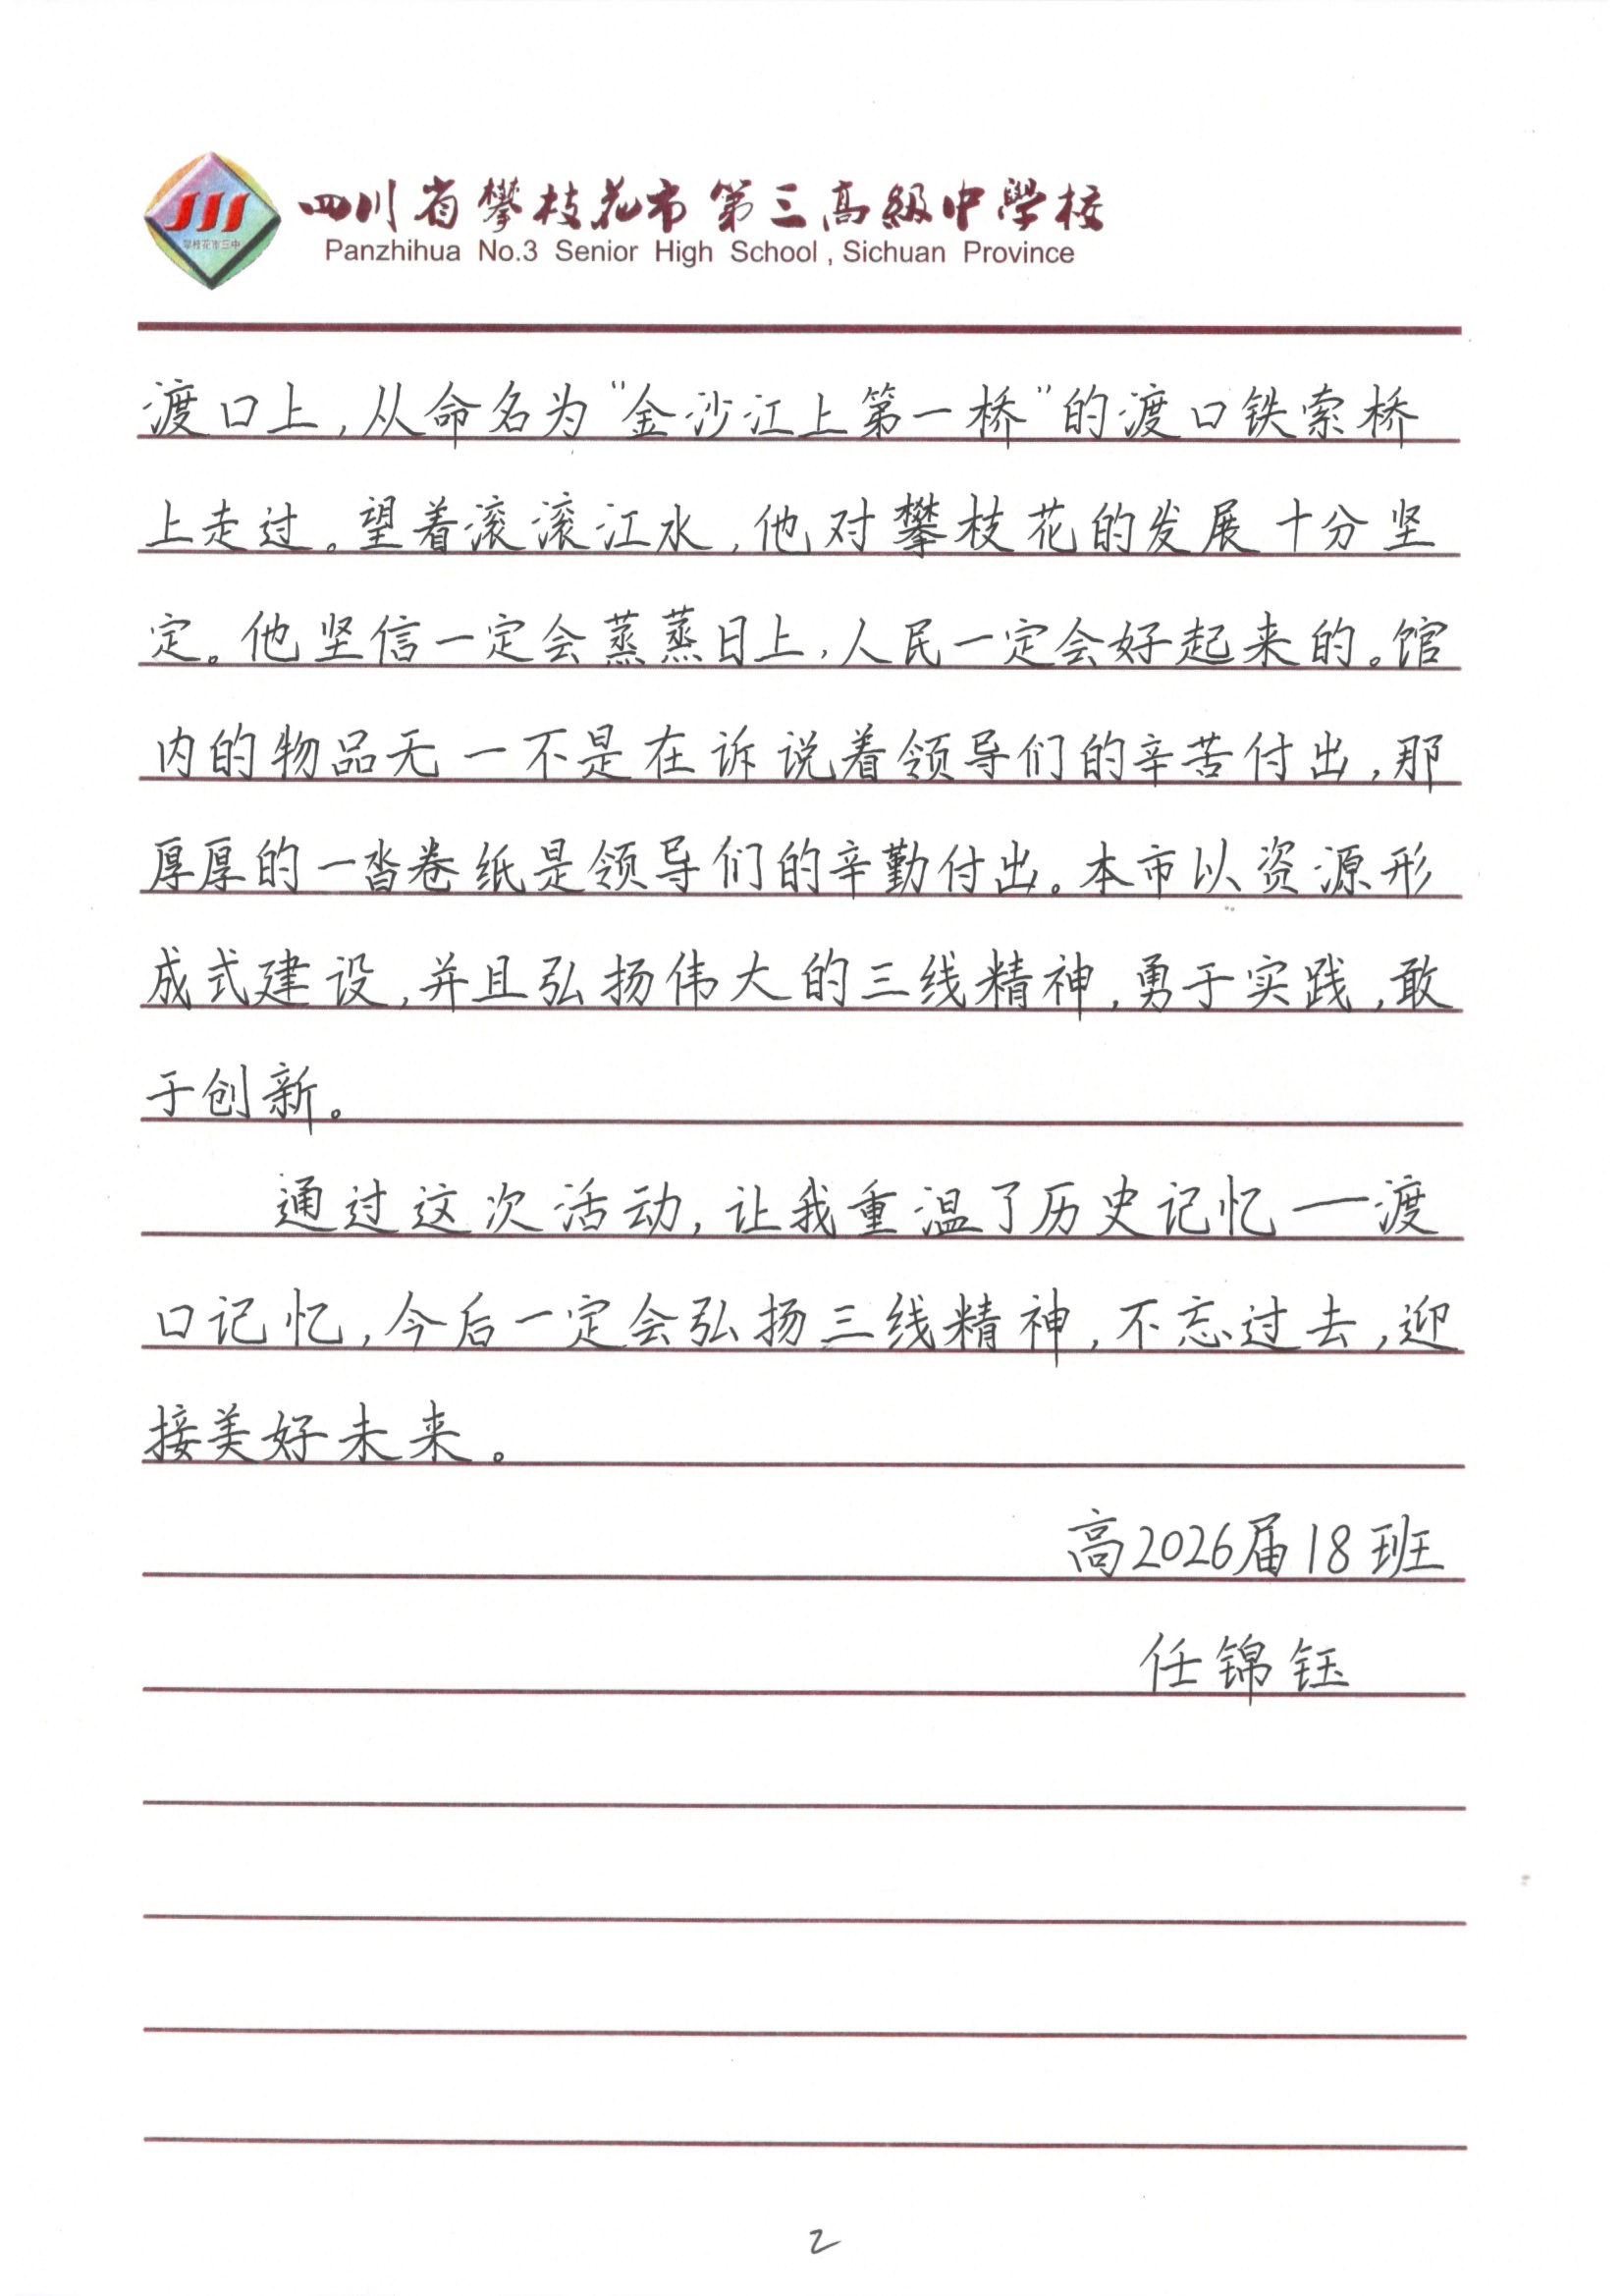 攀枝花市三中
四川省攀枝花市第三高級中學校
Panzhihua No.3 Senior High School , Sichuan Province
渡口上,从命名为“金沙江上第一桥”的渡口铁索桥
上走过。望着滚滚江水,他对攀枝花的发展十分坚
定。他坚信一定会蒸蒸日上,人民一定会好起来的。馆
内的物品无一不是在诉说着领导们的辛苦付出,那
厚厚的一沓卷纸是领导们的辛勤付出。本市以资源形
成式建设,并且弘扬伟大的三线精神,勇于实践,敢
于创新。
通过这次活动,让我重温了历史记忆—渡
口记忆,今后一定会弘扬三线精神,不忘过去,迎
接美好未来。
高2026届18班
任锦钰
2